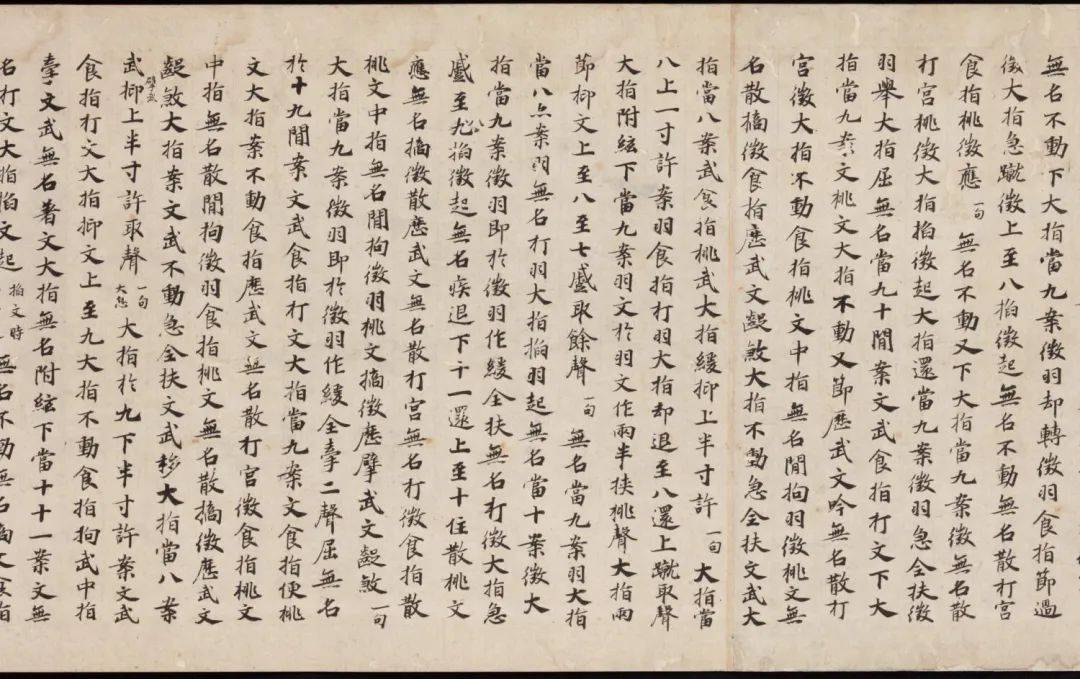 無名不動下大指當九案徵羽却轉徵羽食指節過
後大指急蹴徵上至八掐徵起無名不動無名散打宮
食指桃徵應 一句 無名不動又下大指當九案徵無名散
打宮桃徵大指掐徵起大指還當九案徵羽急全扶徵
羽舉大指屈無名當九十間案文武食指打文下大
指當九案文桃文大指不動又節歷武文吟無名散打
宮徵大指不動食指桃文中指無名間拘羽徵桃文無
名散擿徵食指歷武文齪敜大指不動急全扶文武大
指當八案武食指桃武大指緩抑上半寸許 一句 大指當
八上一寸許案羽食指打羽大指却退至八還上蹴取聲
大指附絃下當九案羽文於羽文作兩半扶桃聲大指兩
節抑文上至八至七蹙取餘聲 一句 無名當九案羽大指
當八案羽無名打羽大指掐羽起無名當十案徵大
指當九案徵羽即於徵羽作緩全扶無名打徵大指急
蹙至九掐徵起無名疾退下十一還上至十住散桃文
應無名擿徵散歷武文無名散打宮無名打徵食指散
桃文中指無名間拘徵羽桃文擿徵歷擘武文齪敜 一句
大指當九案徵羽即於徵羽作緩全牽二聲屈無名
於十九間案文武食指打文大指當九案文食指便桃
文大指案不動食指歷武文無名散打宮徵食指桃文
中指無名散間拘徵羽食指桃文無名散擿徵歷武文
齪敜大指案文武不動急全扶文武移大指當八案
武抑上半寸許取聲 一句 大指於九下半寸許案文武
食指打文大指抑文上至九大指不動食指拘武中指
牽文武無名著文大指無名附絃下當十十一案文無
名打文大指掐文起 掐文時 無名不動無名擿文食指